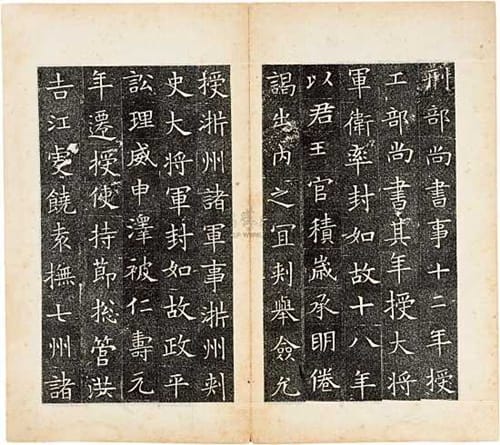 刑部尚書事十二年授
工部尚書其年授大将
軍衛率封如故十八年
以君王官積歳承明倦
謁出内之冝刾舉僉允
授淅州諸軍事淅州刾
史大将軍封如故政平
訟理威申澤被仁壽元
年遷授使持莭揔管洪
吉江虔饒袁撫七州諸